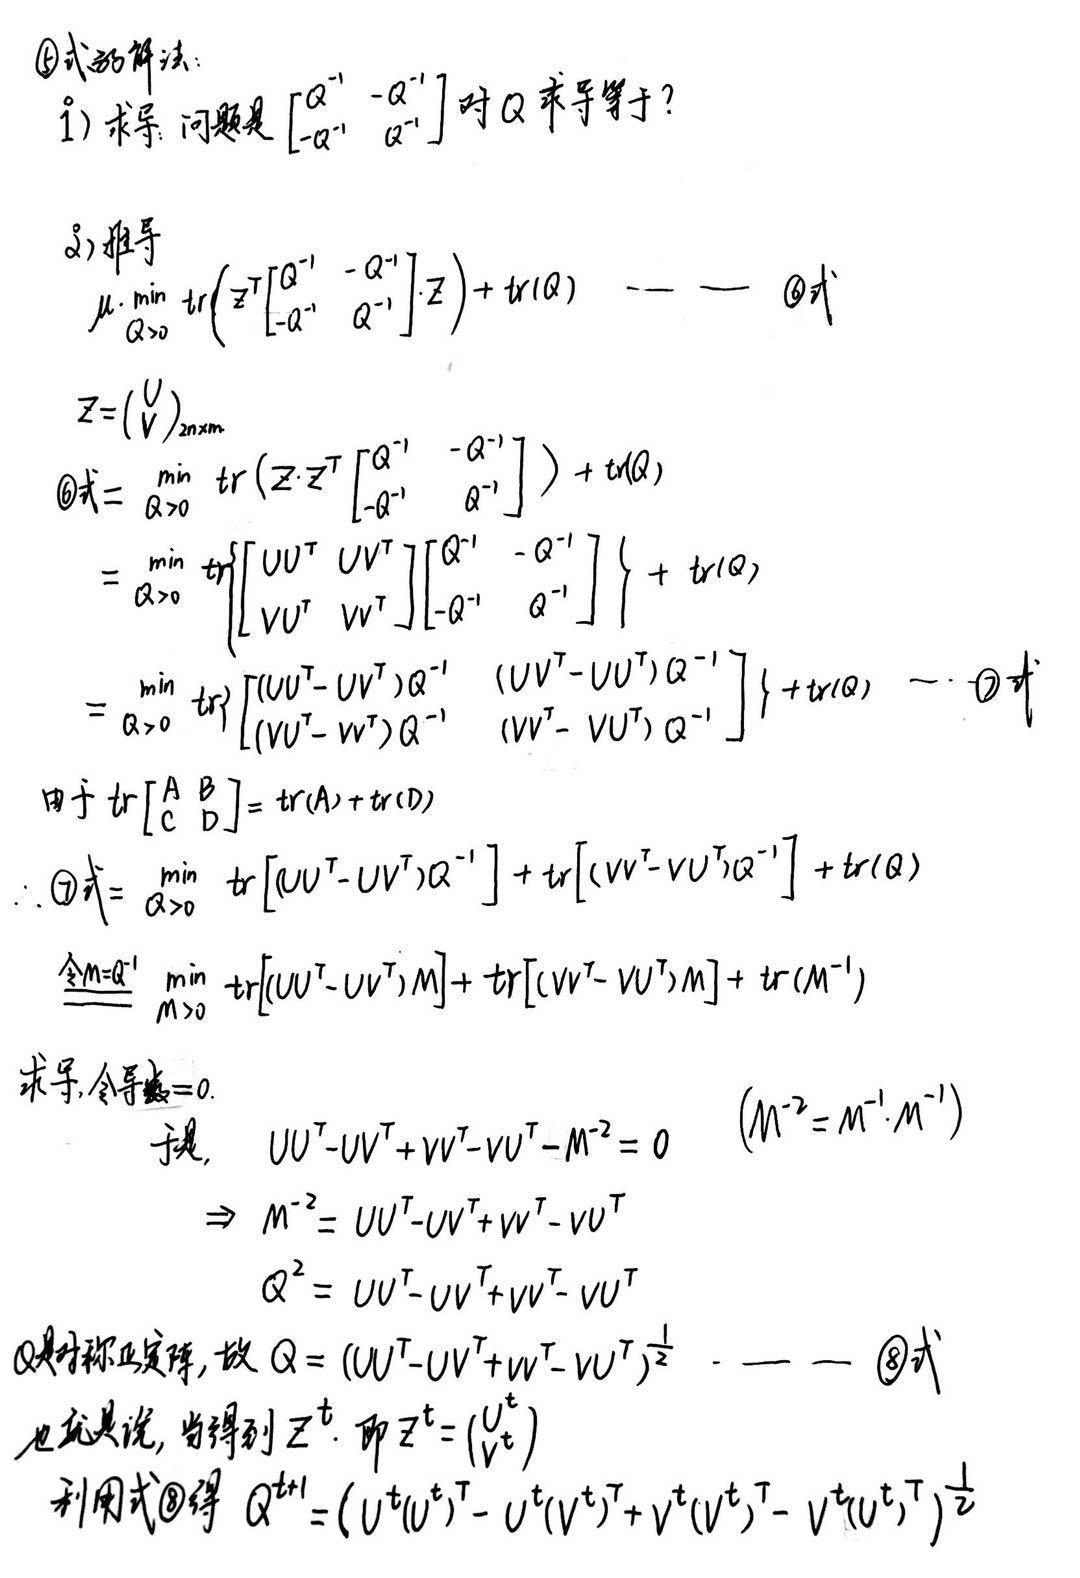 ⑤式的解法:
i) 求导: 问题是 [Q⁻¹ -Q⁻¹; -Q⁻¹ Q⁻¹] 对 Q 求导等于?
2) 推导
μ· min_{Q>0} tr(Z^T [Q⁻¹ -Q⁻¹; -Q⁻¹ Q⁻¹]·Z) + tr(Q) -- — — ⑥式
Z = (U; V)_{2n×m}
⑥式 = min_{Q>0} tr(Z·Z^T [Q⁻¹ -Q⁻¹; -Q⁻¹ Q⁻¹]) + tr(Q)
= min_{Q>0} tr{[UU^T UV^T; VU^T VV^T][Q⁻¹ -Q⁻¹; -Q⁻¹ Q⁻¹]} + tr(Q)
= min_{Q>0} tr{[(UU^T-UV^T)Q⁻¹ (UV^T-UU^T)Q⁻¹; (VU^T-VV^T)Q⁻¹ (VV^T-VU^T)Q⁻¹]} + tr(Q) —·· ⑦式
由于 tr[A B; C D] = tr(A)+tr(D)
∴ ⑦式 = min_{Q>0} tr[(UU^T-UV^T)Q⁻¹] + tr[(VV^T-VU^T)Q⁻¹] + tr(Q)
令M=Q⁻¹ min_{M>0} tr[(UU^T-UV^T)M] + tr[(VV^T-VU^T)M] + tr(M⁻¹)
求导,令导数=0.
于是, UU^T-UV^T+VV^T-VU^T-M⁻² = 0 (M⁻²=M⁻¹·M⁻¹)
⇒ M⁻² = UU^T-UV^T+VV^T-VU^T
Q² = UU^T-UV^T+VV^T-VU^T
Q是对称正定阵, 故 Q = (UU^T-UV^T+VV^T-VU^T)^{1/2} ·— — ⑧式
也就是说, 当得到 Z^t. 即 Z^t = (U^t; V^t)
利用式⑧得 Q^{t+1} = (U^t(U^t)^T - U^t(V^t)^T + V^t(V^t)^T - V^t(U^t)^T)^{1/2}